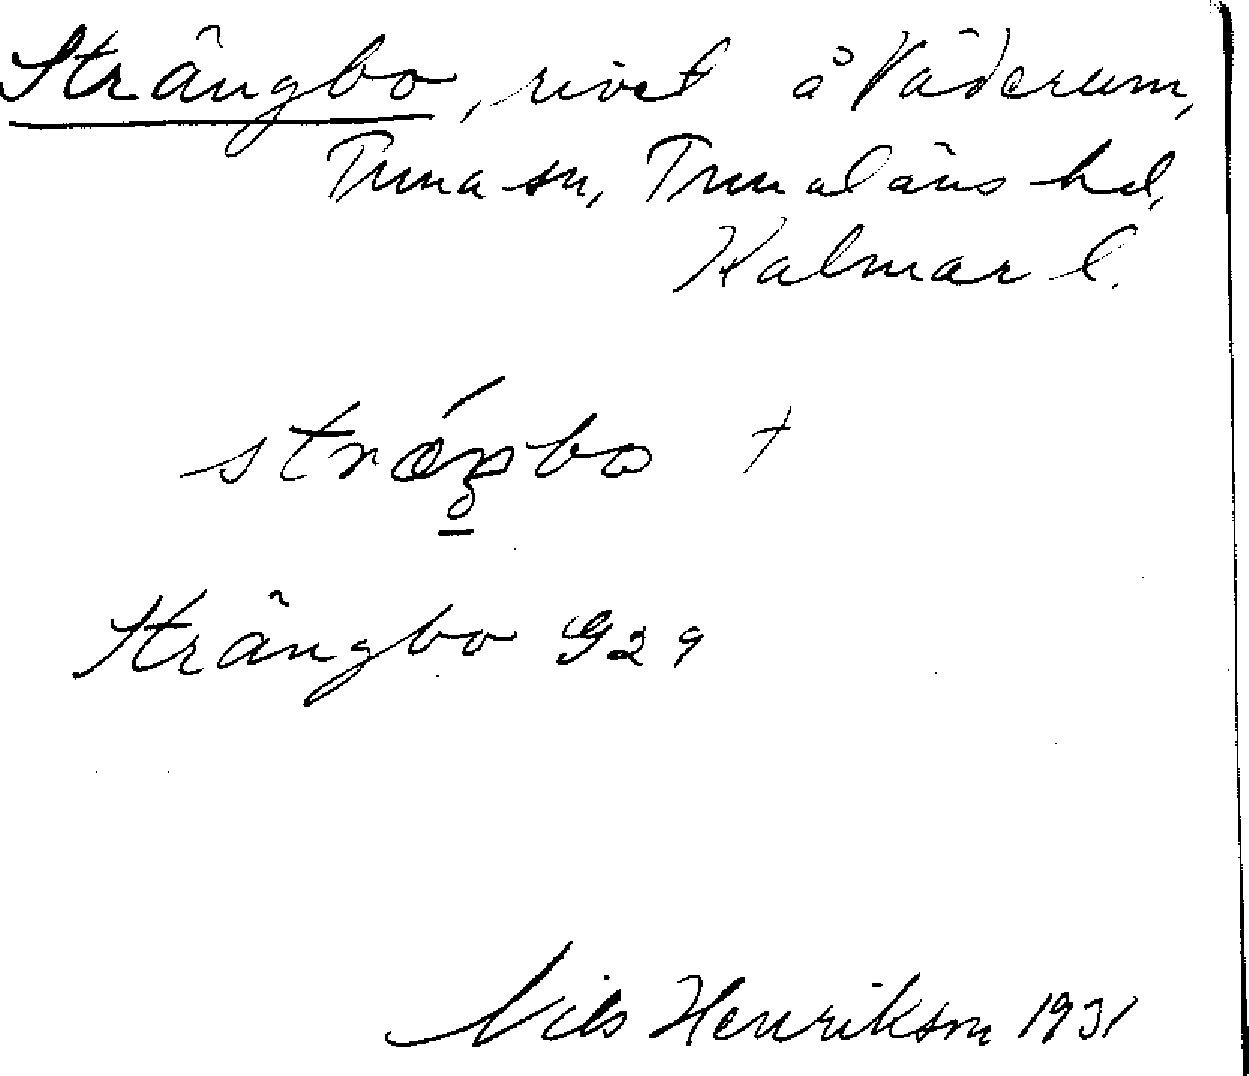 Strängbo, rivet å Väderum,
Tuna sn, Tunaläns hd,
Kalmar l.
Strängbo G29
Nils Henrikson 1931